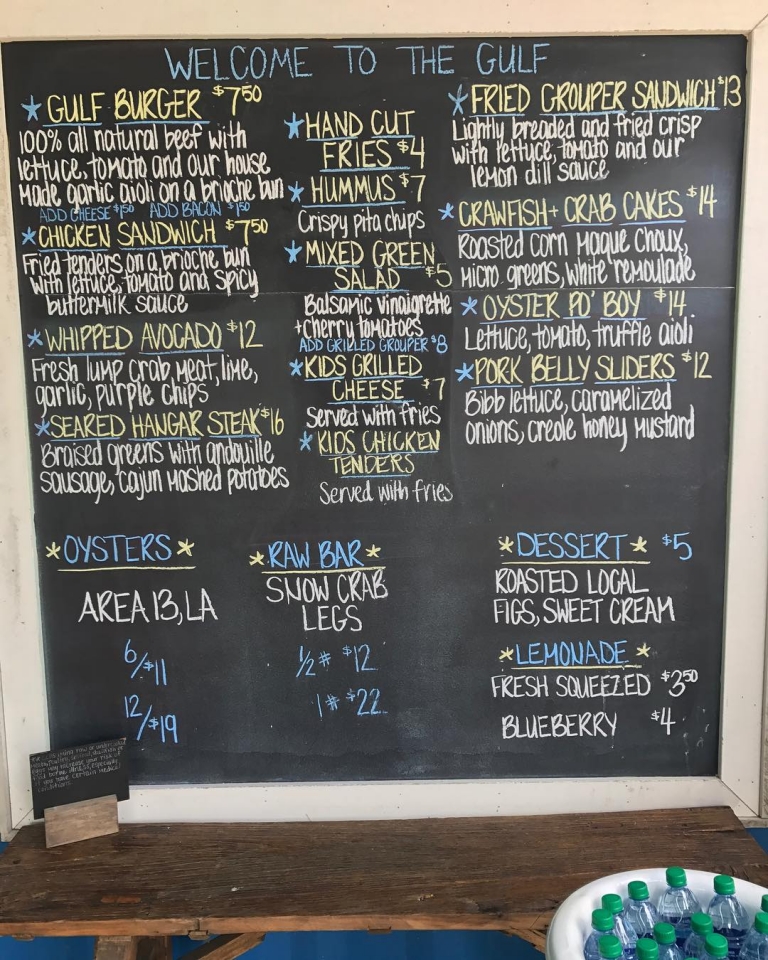 WELCOME TO THE GULF
* GULF BURGER $7.50
100% all natural beef with
lettuce, tomato and our house
made garlic aioli on a brioche bun
ADD CHEESE $1.50 ADD BACON $1.50
* CHICKEN SANDWICH $7.50
Fried tenders on a brioche bun
with lettuce, tomato and spicy
buttermilk sauce
* WHIPPED AVOCADO $12
Fresh lump crab meat, lime,
garlic, purple chips
* SEARED HANGAR STEAK $16
Braised greens with andouille
sausage, cajun mashed potatoes
* HAND CUT
FRIES $4
* HUMMUS $7
Crispy pita chips
* MIXED GREEN
SALAD $5
Balsamic vinaigrette
+cherry tomatoes
ADD GRILLED GROUPER $8
* KIDS GRILLED
CHEESE $7
Served with fries
* KIDS CHICKEN
TENDERS
Served with fries
* FRIED GROUPER SANDWICH $13
Lightly breaded and fried crisp
with lettuce, tomato and our
lemon dill sauce
* CRAWFISH + CRAB CAKES $14
Roasted corn maque choux,
micro greens, white remoulade
* OYSTER PO' BOY $14
Lettuce, tomato, truffle aioli
* PORK BELLY SLIDERS $12
Bibb lettuce, caramelized
onions, creole honey mustard
* OYSTERS *
AREA 13, LA
6/$11
12/$19
* RAW BAR *
SNOW CRAB
LEGS
1/2 # $12
1 # $22
* DESSERT * $5
ROASTED LOCAL
FIGS, SWEET CREAM
* LEMONADE *
FRESH SQUEEZED $3.50
BLUEBERRY $4